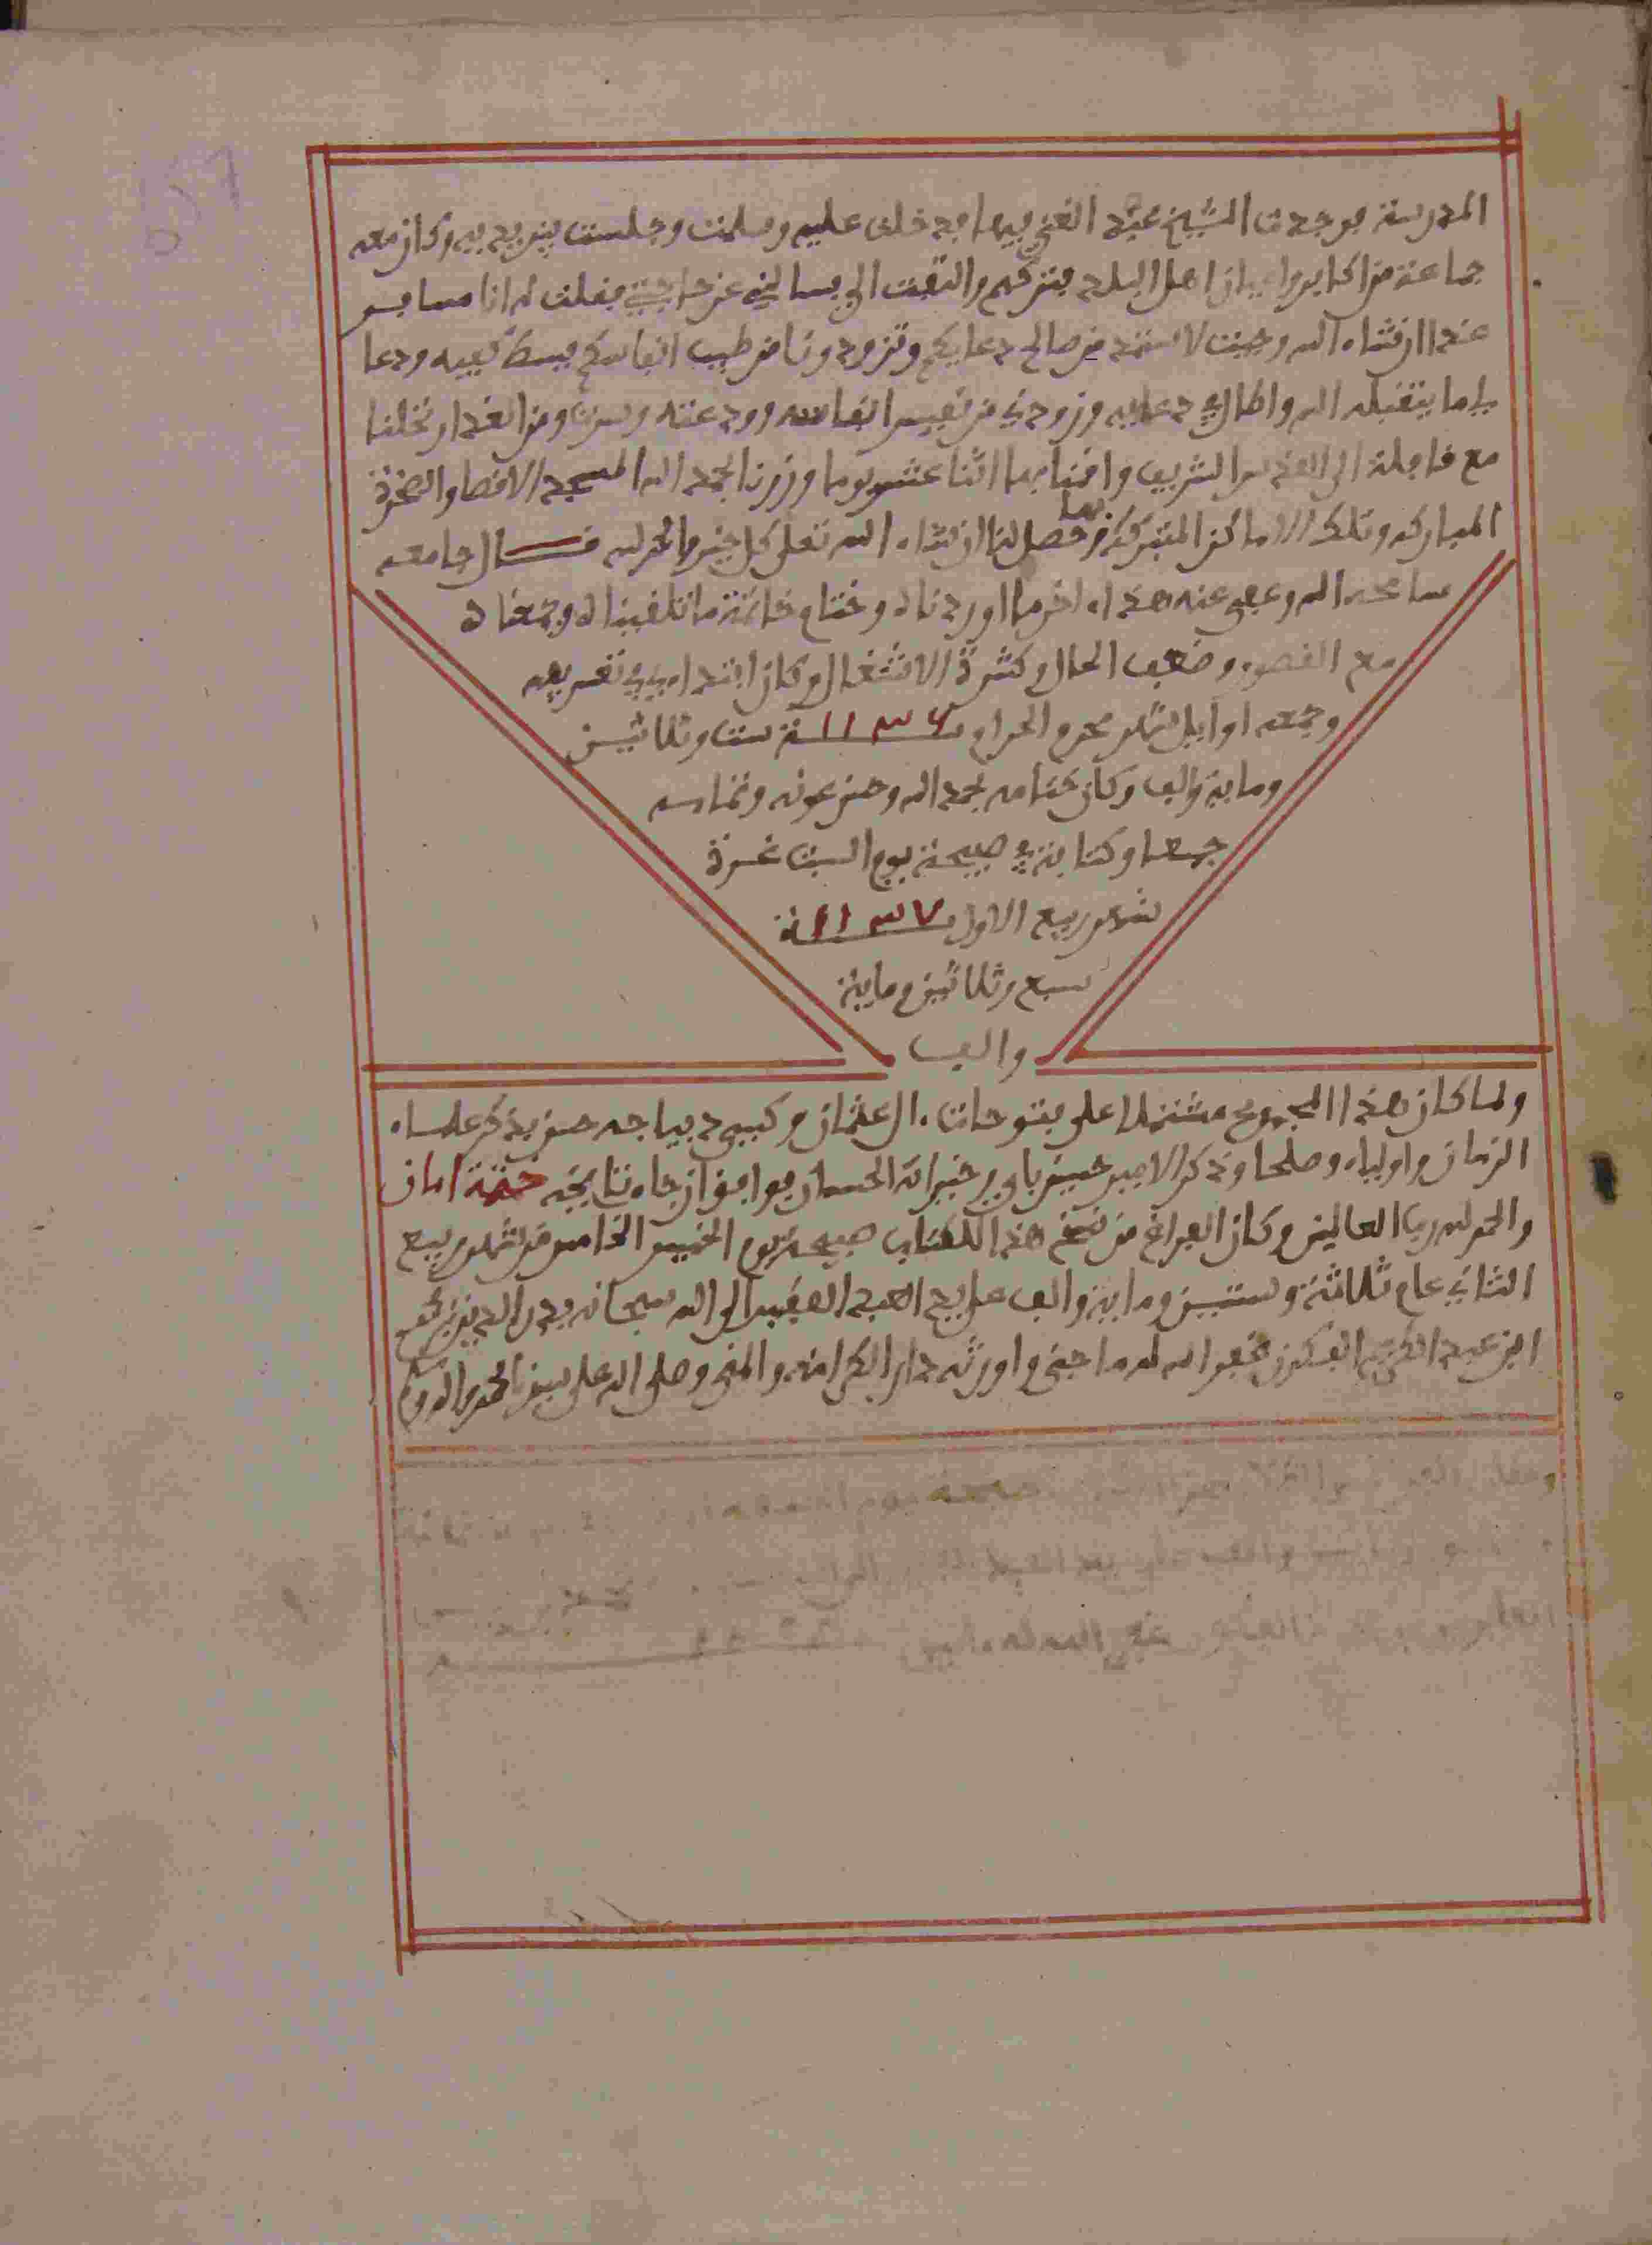 المدرسة فوجدت الشيخ عبد الغني فيها فدخلت عليه وسلمت وجلست بين يديه وكان معه
جماعة من اكابر واعيان اهل البلد فتركهم والتفت الي يسالني عن حاجتي فقلت له انا مسافر
غدا ان شاء الله وجيت لاستمد من صالح دعايكم وتزودونا من طيب انفاسكم فبسط كفيه ودعا
لي ما يتقبله الله واطال في دعايه وزودني من نفيس انفاسه وودعته وسرت ومن الغد ارتحلنا
مع قافلة الى القدس الشريف واقمنا بها اثنا عشر يوما وزرنا بحمد الله المسجد الاقصا والصخرة
المباركه وتلك الاماكن المتبركة بها وحصل لنا ان شاء الله تعلى كل خير والحمد لله قال جامعه
سامحه الله وعفى عنه هذا اخر ما اوردناه وختام خاتمة ما تلقيناه وجمعناه
مع القصور وضعف الحال وكثرة الاشتغال وكان ابتداءي في تفريعه
وجمعه اوايل شهر محرم الحرام سنة ١١٣٦ ست وثلاثين
وماية والف وكان ختامه بحمد الله وحسن عونه وتمامه
جمعا وكتابة في صبيحة يوم السبت غرة
شهر ربيع الاول سنة ١١٣٧
سبع وثلاثين وماية
والف
ولما كان هذا المجموع مشتملا على فتوحات ال عثمان وكيفي ديباجه حسن بذكر علماء
الزمان واولياء وصلحا وذكر الامير حسين باي وخيراته الحسان فوافق ان جاء تاريخه ختمة امان
والحمد لله رب العالمين وكان الفراغ من نسخ هذا الكتاب صبيحة يوم الخميس الخامس من شهر ربيع
الثاني عام ثلاثة وستين وماية والف على يد العبد الفقير الى الله سبحانه بدر الدين بن عمر
ابن عبد الكريم الفكون غفر الله له ما جنى واورثه دار الكرامة والمنى وصلى الله على سيدنا محمد واله وسلم
صبيحة يوم
والف على يد العبد
الفكون غفر الله له